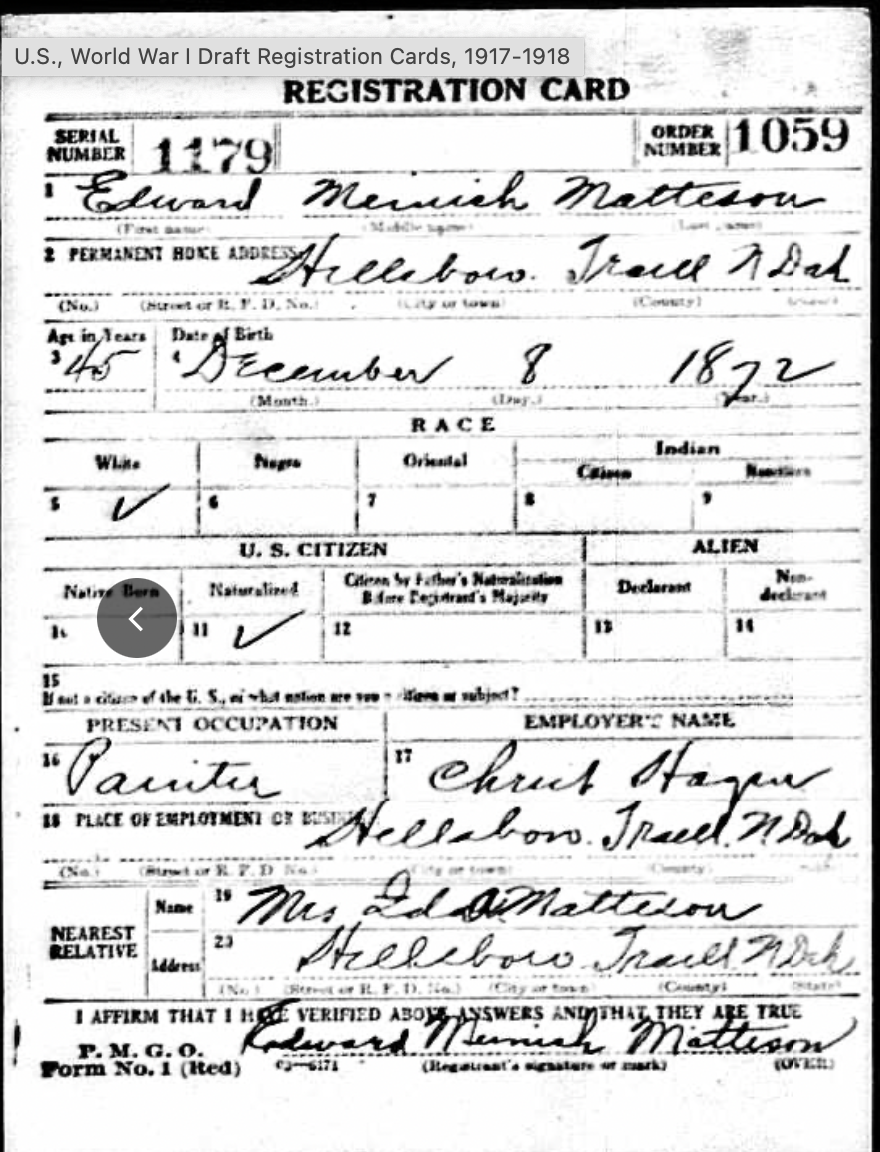 U.S., World War I Draft Registration Cards, 1917-1918
REGISTRATION CARD
SERIAL NUMBER 1179 ORDER NUMBER 1059
1 Edward Meinich Matteson
(First name) (Middle name) (Last name)
2 PERMANENT HOME ADDRESS Hillsboro. Traill N Dak
(No.) (Street or R. F. D. No.) (City or town) (County) (State)
Age in Years Date of Birth
3 45 4 December 8 1872
(Month.) (Day.) (Year.)
RACE
White Negro Oriental Indian
Citizen Noncitizen
5 ✓ 6 7 8 9
U. S. CITIZEN ALIEN
Native Born Naturalized Citizen by Father's Naturalization Before Registrant's Majority Declarant Non-declarant
11 ✓ 12 13 14
15
If not a citizen of the U. S., of what nation are you a citizen or subject?
PRESENT OCCUPATION EMPLOYER'S NAME
16 Painter 17 Christ Hagen
18 PLACE OF EMPLOYMENT OR BUSINESS Hillsboro. Traill. N Dak
(No.) (Street or R. F. D. No.) (City or town) (County)
NEAREST RELATIVE Name 19 Mrs Ida Matteson
Address 20 Hillsboro Traill N Dak
(No.) (Street or R. F. D. No.) (City or town) (County) (State)
I AFFIRM THAT I HAVE VERIFIED ABOVE ANSWERS AND THAT THEY ARE TRUE
P. M. G. O.
Form No. 1 (Red) 03—6171 Edward Meinich Matteson
(Registrant's signature or mark) (OVER)